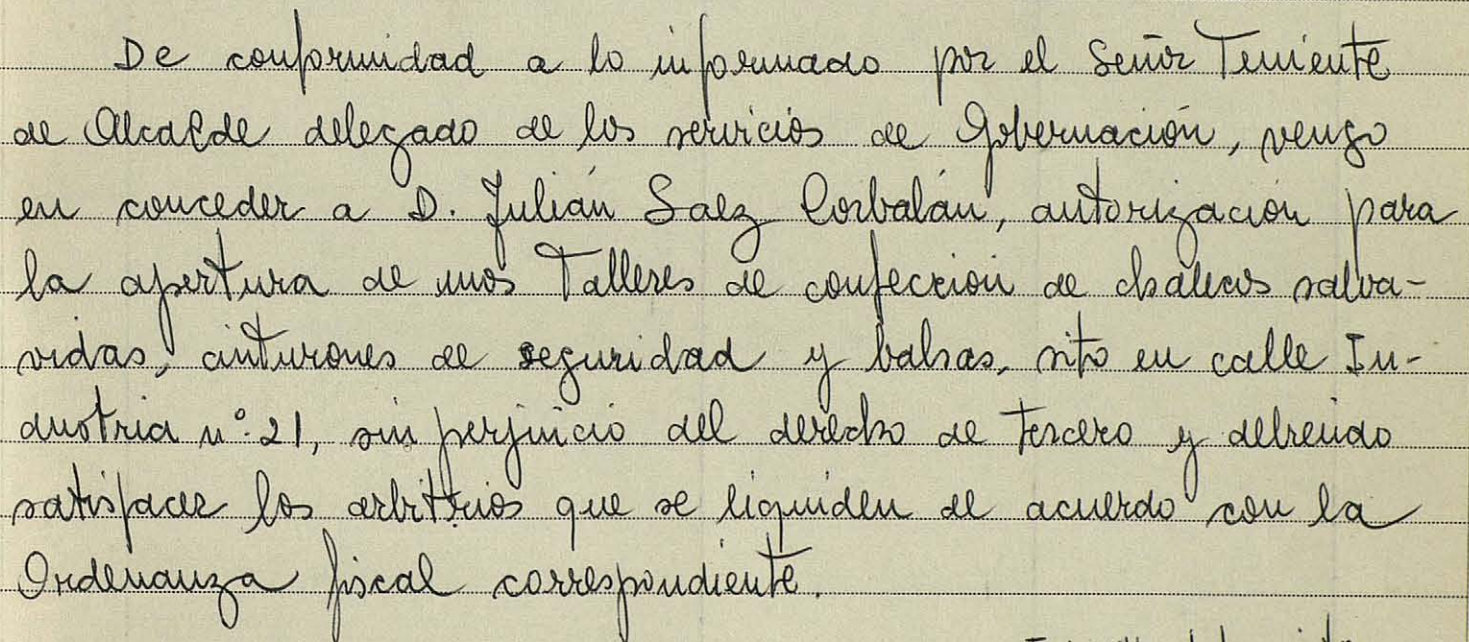 De conformidad a lo informado por el Señor Teniente
de Alcalde delegado de los servicios de Gobernación, vengo
en conceder a D. Julián Saez Corbalán, autorización para
la apertura de unos Talleres de confección de chalecos salva-
vidas, cinturones de seguridad y balsas, sito en calle In-
dustria nº. 21, sin perjuicio del derecho de tercero y debiendo
satisfacer los arbitrios que se liquiden de acuerdo con la
Ordenanza fiscal correspondiente.